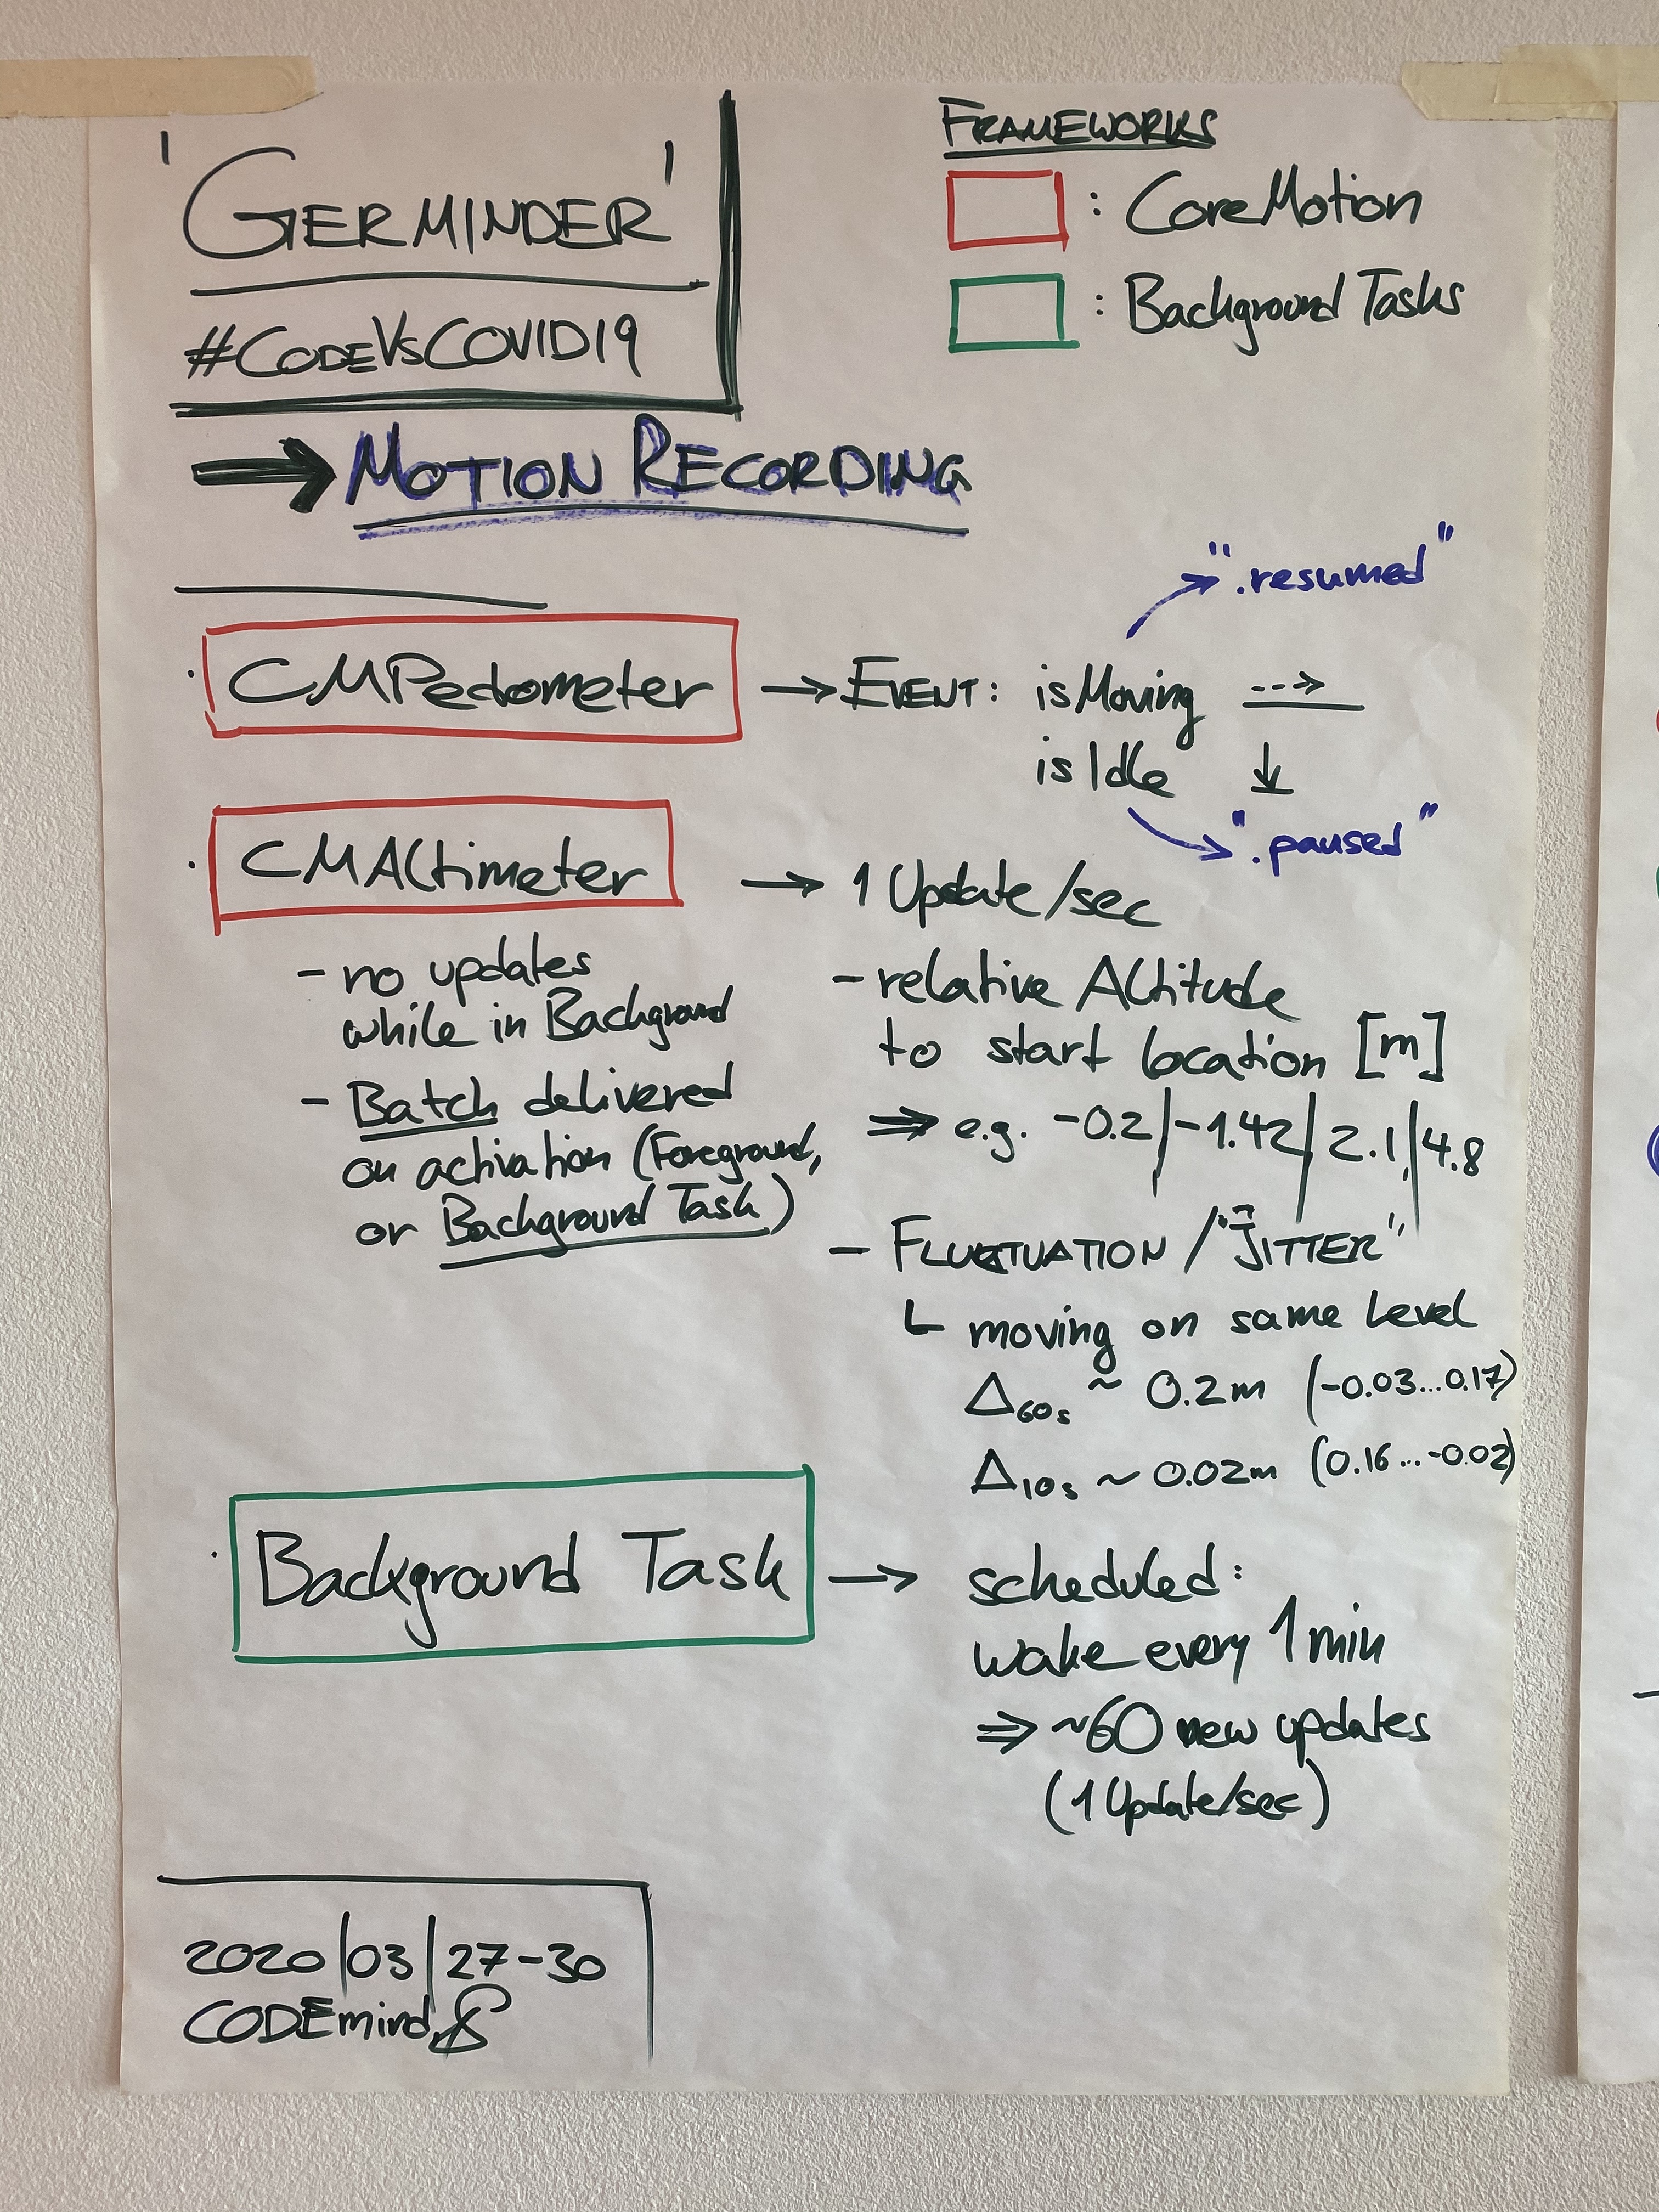 'GERMINDER'
#CODEVSCOVID19
FRAMEWORKS
: CoreMotion
: Background Tasks
→ MOTION RECORDING
". resumed"
· CMPedometer → EVENT: isMoving
isIdle
". paused"
· CMAltimeter → 1 Update/sec
- no updates
while in Background
- Batch delivered
on activation (Foreground,
or Background Task)
- relative Altitude
to start location [m]
⇒ e.g. -0.2 | -1.42 | 2.1 | 4.8
- FLUKTUATION / "JITTER"
moving on same level
Δ60s ~ 0.2m (-0.03...0.17)
Δ10s ~ 0.02m (0.16...-0.02)
· Background Task → scheduled:
wake every 1 min
⇒ ~60 new updates
(1 Update/sec)
2020|03|27-30
CODEmind